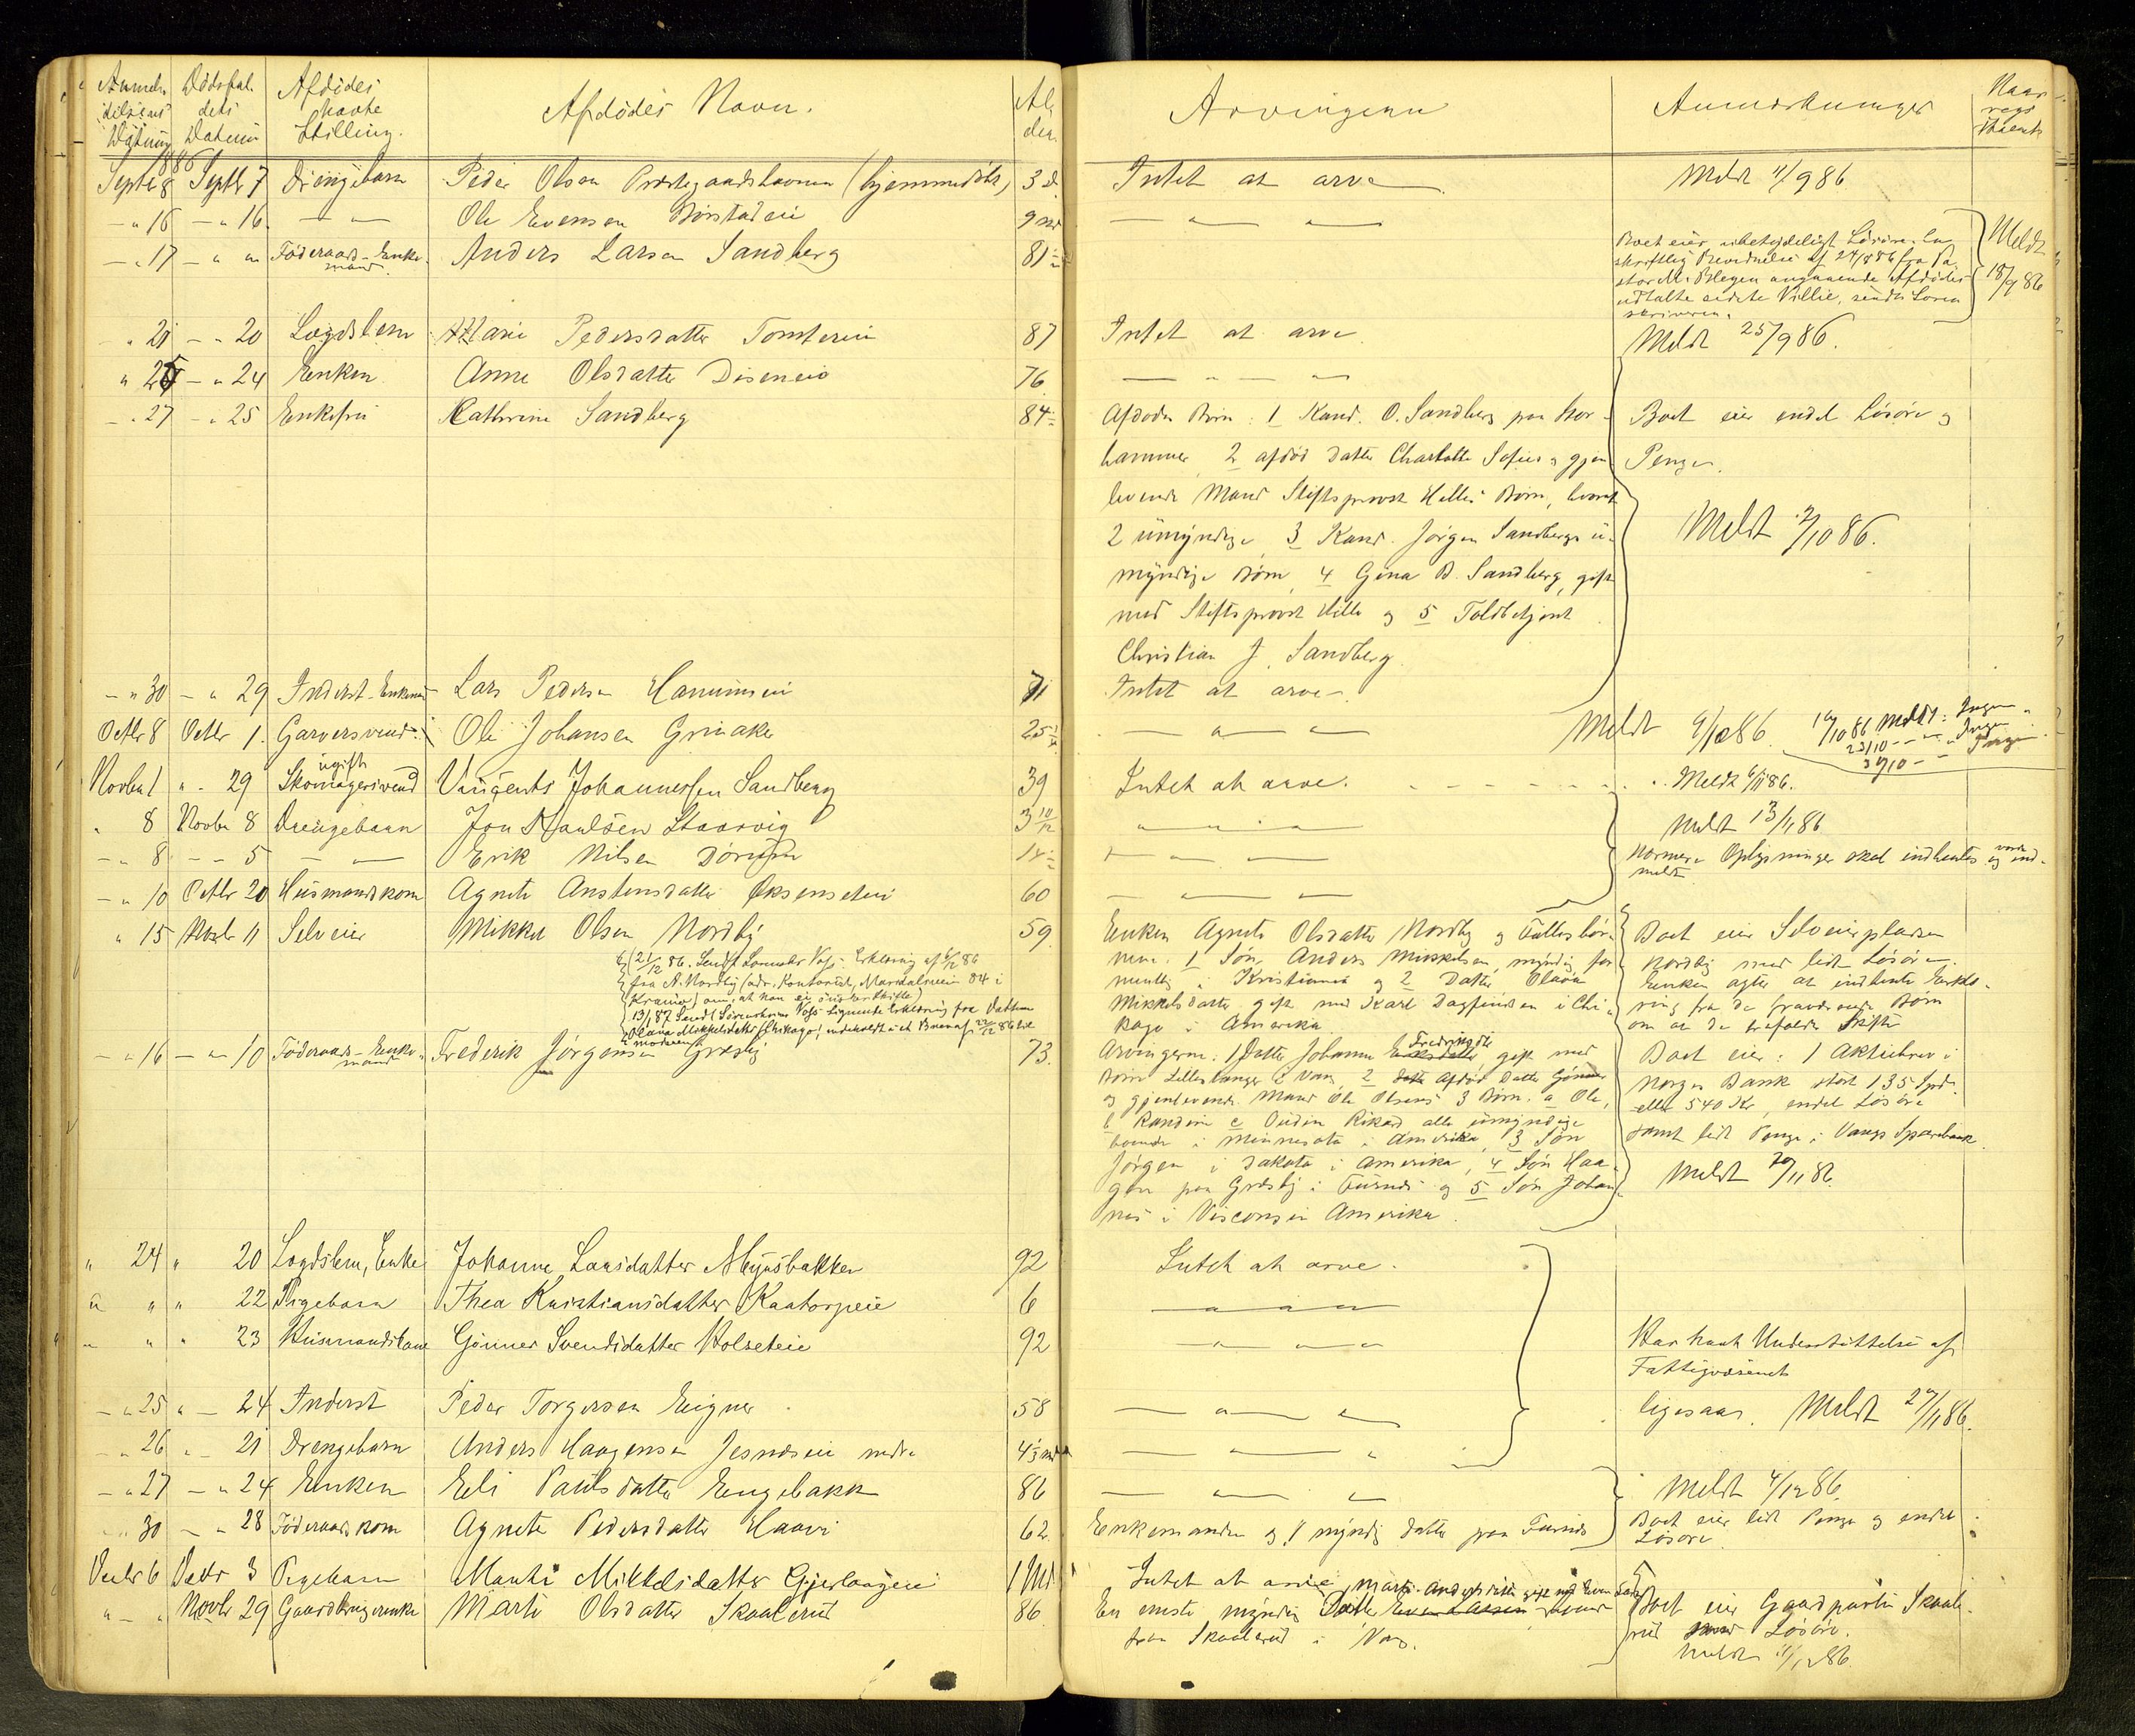 Anmel-
delsens
Datum
Dødsfal-
dets
Datum
Afdødes
havte
Stilling.
Afdødes Navn.
Al-
der
Arvingerne
Anmærkninger
1886
Septbr 8 Septbr 7 Drengebarn Peder Olsen Prestegaardshavnen (hjemmedøbt) 3 d. Intet at arve Meldt 11/9 86.
— „ 16 — „ 16. — „ — Ole Evensen Børstadeie 9 md — „ —
— „ 17 — „ „ Føderaads-Enke-
mand Anders Larsen Sandberg 81
Boet eier ubetydeligt Løsøre. En
skriftlig Bevidnelse af 24/8 86 fra Pa-
stor M. Blegen angaaende Afdødes
udtalte sidste Villie, sendt Soren-
skriveren.
Meldt
18/9 86
„ 21 — „ 20 Lægdslem Marie Pedersdatter Tomtereie 87 Intet at arve Meldt 25/9 86.
„ 25 — „ 24 Enken Anne Olsdatter Diseneie 76 — „ —
— „ 27 — „ 25 Enkefru Cathrine Sandberg 84
Afdødes Børn: 1 Kand. O. Sandberg paa Stor-
hammer, 2 afdød Datter Charlotte Sofies og gjen-
levende Mand Stiftsprovst Hilles Børn, hvoraf
2 umyndige, 3 Kand. Jørgen Sandbergs u-
myndige Børn, 4 Gina B. Sandberg, gift
med Stiftsprovst Hille og 5 Toldbetjent
Christian J. Sandberg.
Boet eier endel Løsøre og
Penge.
Meldt 2/10 86.
— „ 30 — „ 29 Inderst-Enkemd Lars Pedersen Hammeseie 71 Intet at arve
Octbr 8 Octbr 1. Garversvend Ole Johansen Grinaker 25 — „ — Meldt 9/10 86. 16/10 86 Meldt: Ingen
23/10 — „ — Ingen
30/10 — „ Ingen
Novbr 1 „ „ 29 ugift
Skomagersvend Vincents Johannessen Sandberg 39 Intet at arve. Meldt 6/11 86.
„ 8 Novbr 8 Drengebarn Jon Paulsen Staarvig 3 10/12 — „ — Meldt 13/11 86
— „ 8 — „ 5 — „ — Erik Nilsen Dørum 14 — „ — Nærmere Oplysninger skal indhentes og vorde ind-
meldt
— „ 10 Octbr 20 Husmandskone Agnete Anstensdatter Oksenseteie 60 — „ —
„ 15 Novbr 11 Selveier Mikkel Olsen Nordby 59
21/12 86. Sendt Lensmd. Voss Erklæring af 6/12 86
fra A. Nordby (adr. Kontorist, Markveien 84 i
Krania) om, at han ei ønsker Skifte
13/1 87 Sendt Sorenskriver Voss lignende Erklæring fra Datteren
Oleana Mikkelsdatter i Chikago, indeholdt i et Brev af 22/12 86 til
Moderen
Enken Agnete Olsdatter Nordby og Fællesbør-
nene: 1 Søn, Anders Mikkelsen, myndig, for-
mentlig i Kristiania og 2 Datter Oleana
Mikkelsdatter gift med Karl Dagfindsen i Chi-
kago i Amerika.
Boet eier Selveierpladsen
Nordby med lidt Løsøre.
Enken agter at indhente Erklæ-
ring fra de fraværende Børn
om at de frafalde Skifte
— „ 16 — „ 10 Føderaads-Enke-
mand Frederik Jørgensen Græsby 73.
Arvingerne: 1 Datter Johanne Fredriksdtr gift med
Børn Lilleslanger i Vang, 2 Afdød Datter Gønner
og gjenlevende Mand Ole Olsens 3 Børn: a Ole,
b Randine c Oudin Rikard alle umyndige
boende i Minnesota i Amerika, 3 Søn
Jørgen i Dakota i Amerika, 4 Søn Haa-
gen paa Græsby i Furnes og 5 Søn Johan-
nes i Visconsin Amerika.
Boet eier: 1 Aktiebrev i
Norges Bank stort 135 Spd.
eller 540 Kr, endel Løsøre
samt lidt Penge i Vangs Sparebank
Meldt 20/11 86.
„ 24 „ 20 Lægdslem, Enke Johanne Larsdatter Myrsbakken 92 Intet at arve.
„ „ „ 22 Pigebarn Thea Kristiansdatter Kaatorpeie 6 — „ —
„ „ „ 23 Husmandskone Gønner Svendsdatter Holseteie 92 — „ — Har havt Understøttelse af
Fattigvæsenet
— „ 25 „ — 24 Inderst Peder Torgersen Eigner 58 — „ — ligesaa. Meldt 27/11 86.
— „ 26 „ — 21 Drengebarn Anders Haagensen Jesneseie nedre 4½ md — „ —
— „ 27 — „ 24 Enken Eli Paulsdatter Engebakk 86 — „ — Meldt 4/12 86.
„ 30 — „ 28 Føderaadskone Agnete Pedersdatter Haave 62 Enkemanden og 1 myndig Datter paa Furnes Boet eier lidt Penge og endel
Løsøre.
Decbr 6 Decbr 3 Pigebarn Marthe Mikkelsdatter Gjerlaugeie 1 Md Intet at arve
„ — „ Novbr 29 Gaardbrugerenke Marte Olsdatter Skaalerud 86
Marte Andersdatter gift med Even Larsen
En eneste myndig Datter Even Larsen boende
paa Skaalerud i Vang.
Boet eier Gaardparten Skaale-
rud med Løsøre.
Meldt 11/12 86.